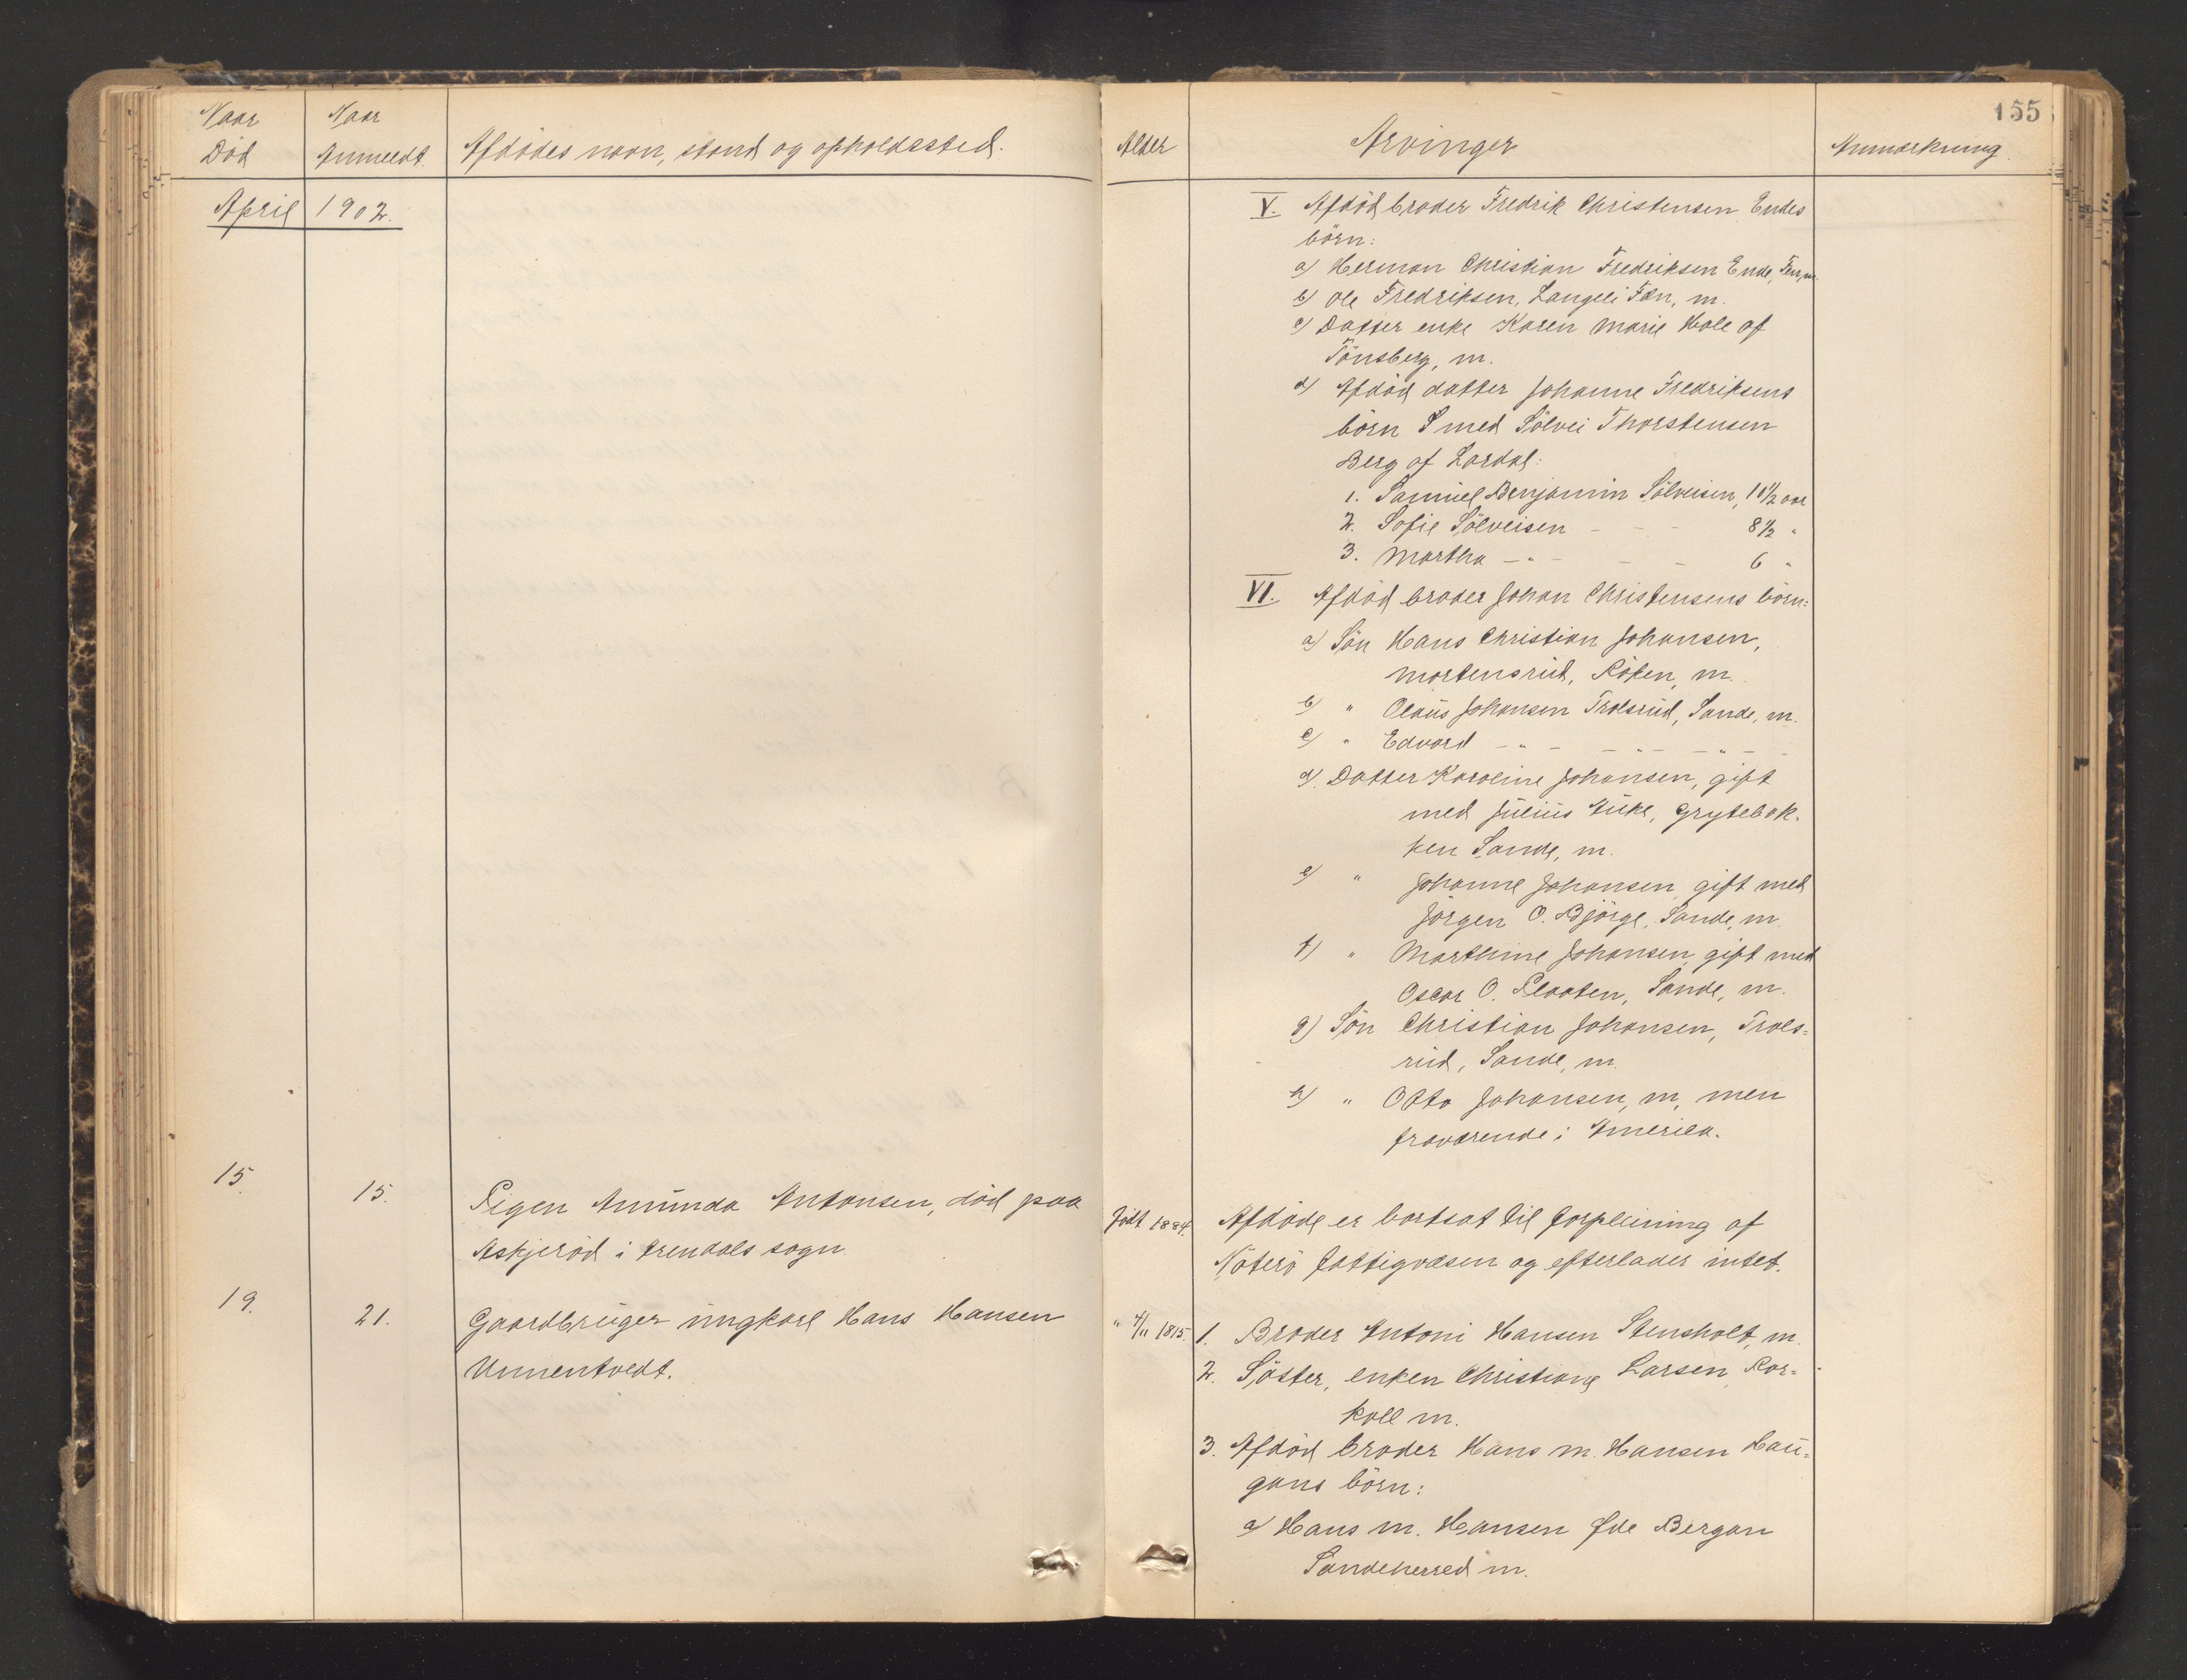 155
Naar
Död
Naar
Anmeldt.
Afdödes navn, stand og opholdssted.
Alder
Arvinger
Anmærkning
April 1902.
V. Afdöd broder Fredrik Christensen Endes
börn:
a) Herman Christian Fredriksen Ende, m.
b) Ole Fredriksen, Langeli m.
c) Datter enke Karen Marie Hole af
Tönsberg, m.
d) Afdöd datter Johanne Fredriksens
börn med Sölvei Thorstensen
Berg af Lardal:
1. Samuel Benjamin Sölveisen, 10 1/2 aar
2. Sofie Sölveisen - - - 8 1/2 "
3. Martha - " - - - 6 "
VI. Afdöd broder Johan Christensens börn:
a) Sön Hans Christian Johansen,
Mortensrud, Röken, m.
b) " Olaus Johansen Trolsrud, Sande, m.
c) " Edvard - " - - " - - " - -
d) Datter Karoline Johansen, gift
med Julius Auke, Grytebæk-
ken Sande, m.
e) " Johanne Johansen gift med
Jörgen O. Björge, Sande, m.
f) " Marthine Johansen, gift med
Oscar O. Plaaten, Sande, m.
g) Sön Christian Johansen, Trols=
rud, Sande, m.
h) " Otto Johansen, m, men
fraværende i Amerika.
15.
15.
Pigen Amunda Antonsen, död paa
Askjeröd i Arendals sogn
Födt 1884.
Afdöde er bortsat til forpleining af
Nöterö fattigvæsen og efterlader intet.
19.
21.
Gaardbruger ungkarl Hans Hansen
Unnentvedt.
" 4/11 1815.
1. Broder Antoni Hansen Stensholt, m.
2. Söster, enken Christiane Larsen, Ror=
koll m.
3. Afdöd broder Hans M. Hansen Hau=
gans börn:
a) Hans M. Hansen Bergan
Sandeherred m.